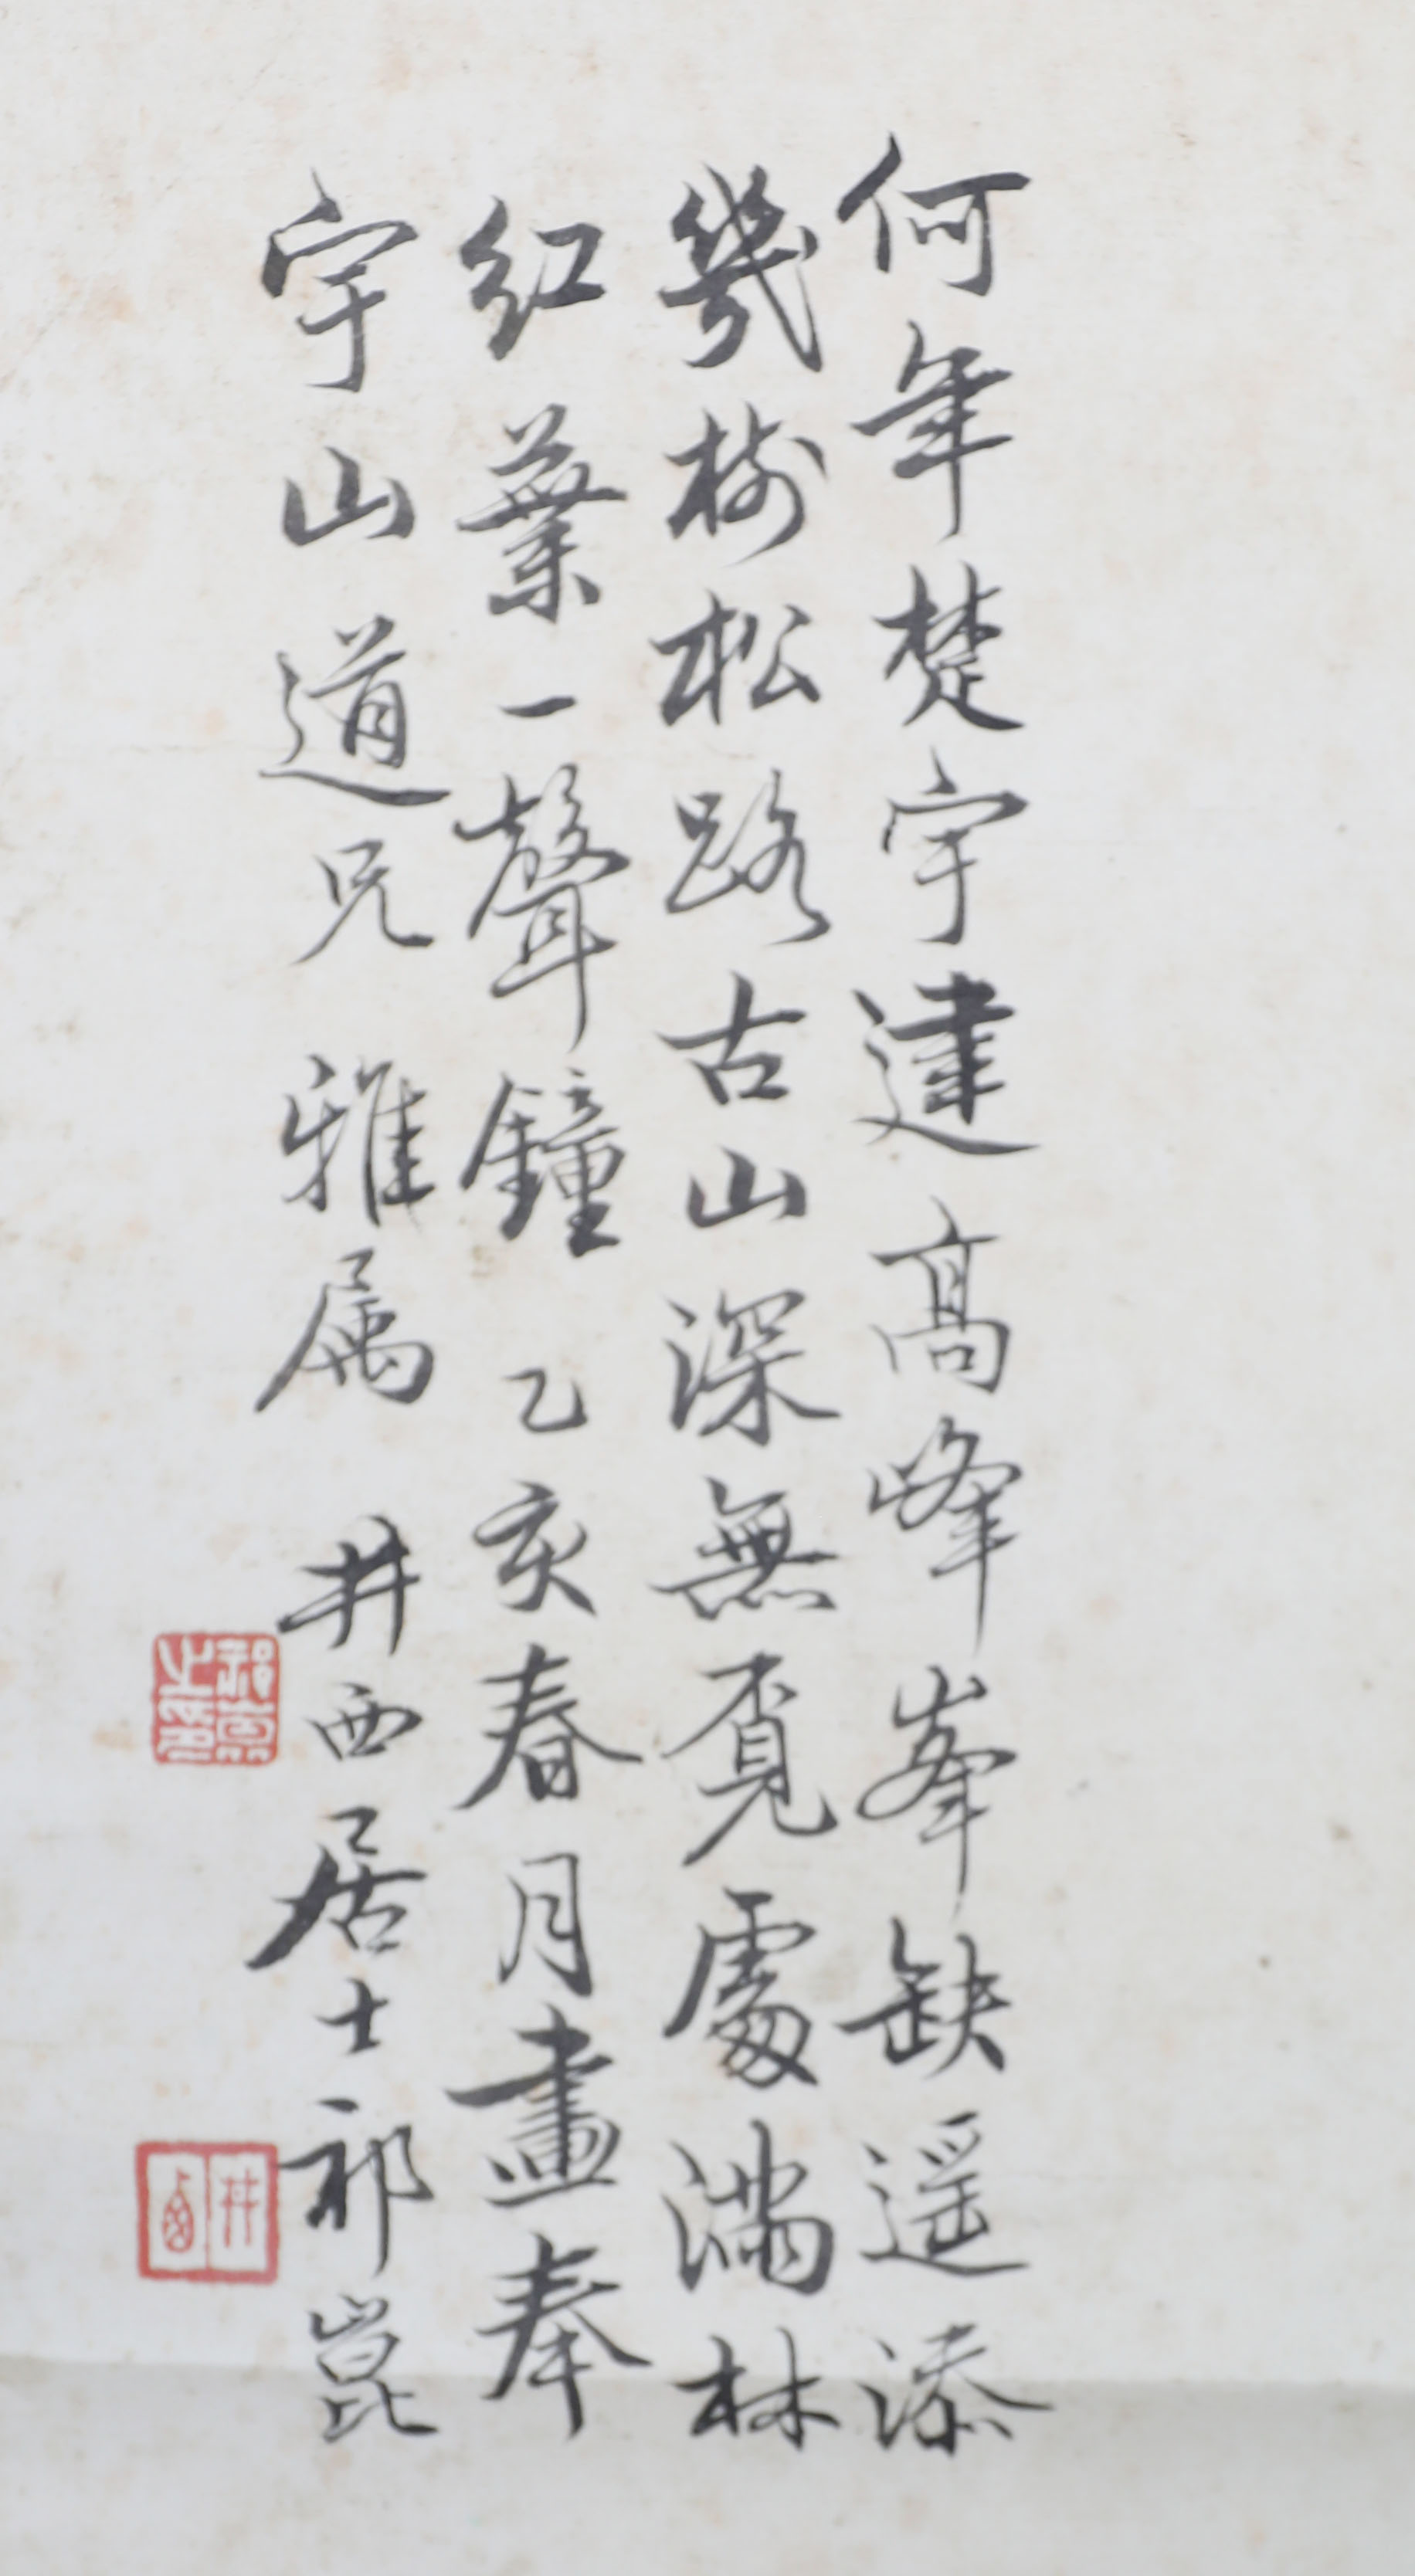 何年楚宇建高峰峯缺遥添
幾樹松路古山深無覓處滿林
紅葉一聲鐘 乙亥春月畫奉
宇山道兄 雅属 井西居士祁崑
祁崑之印
井西